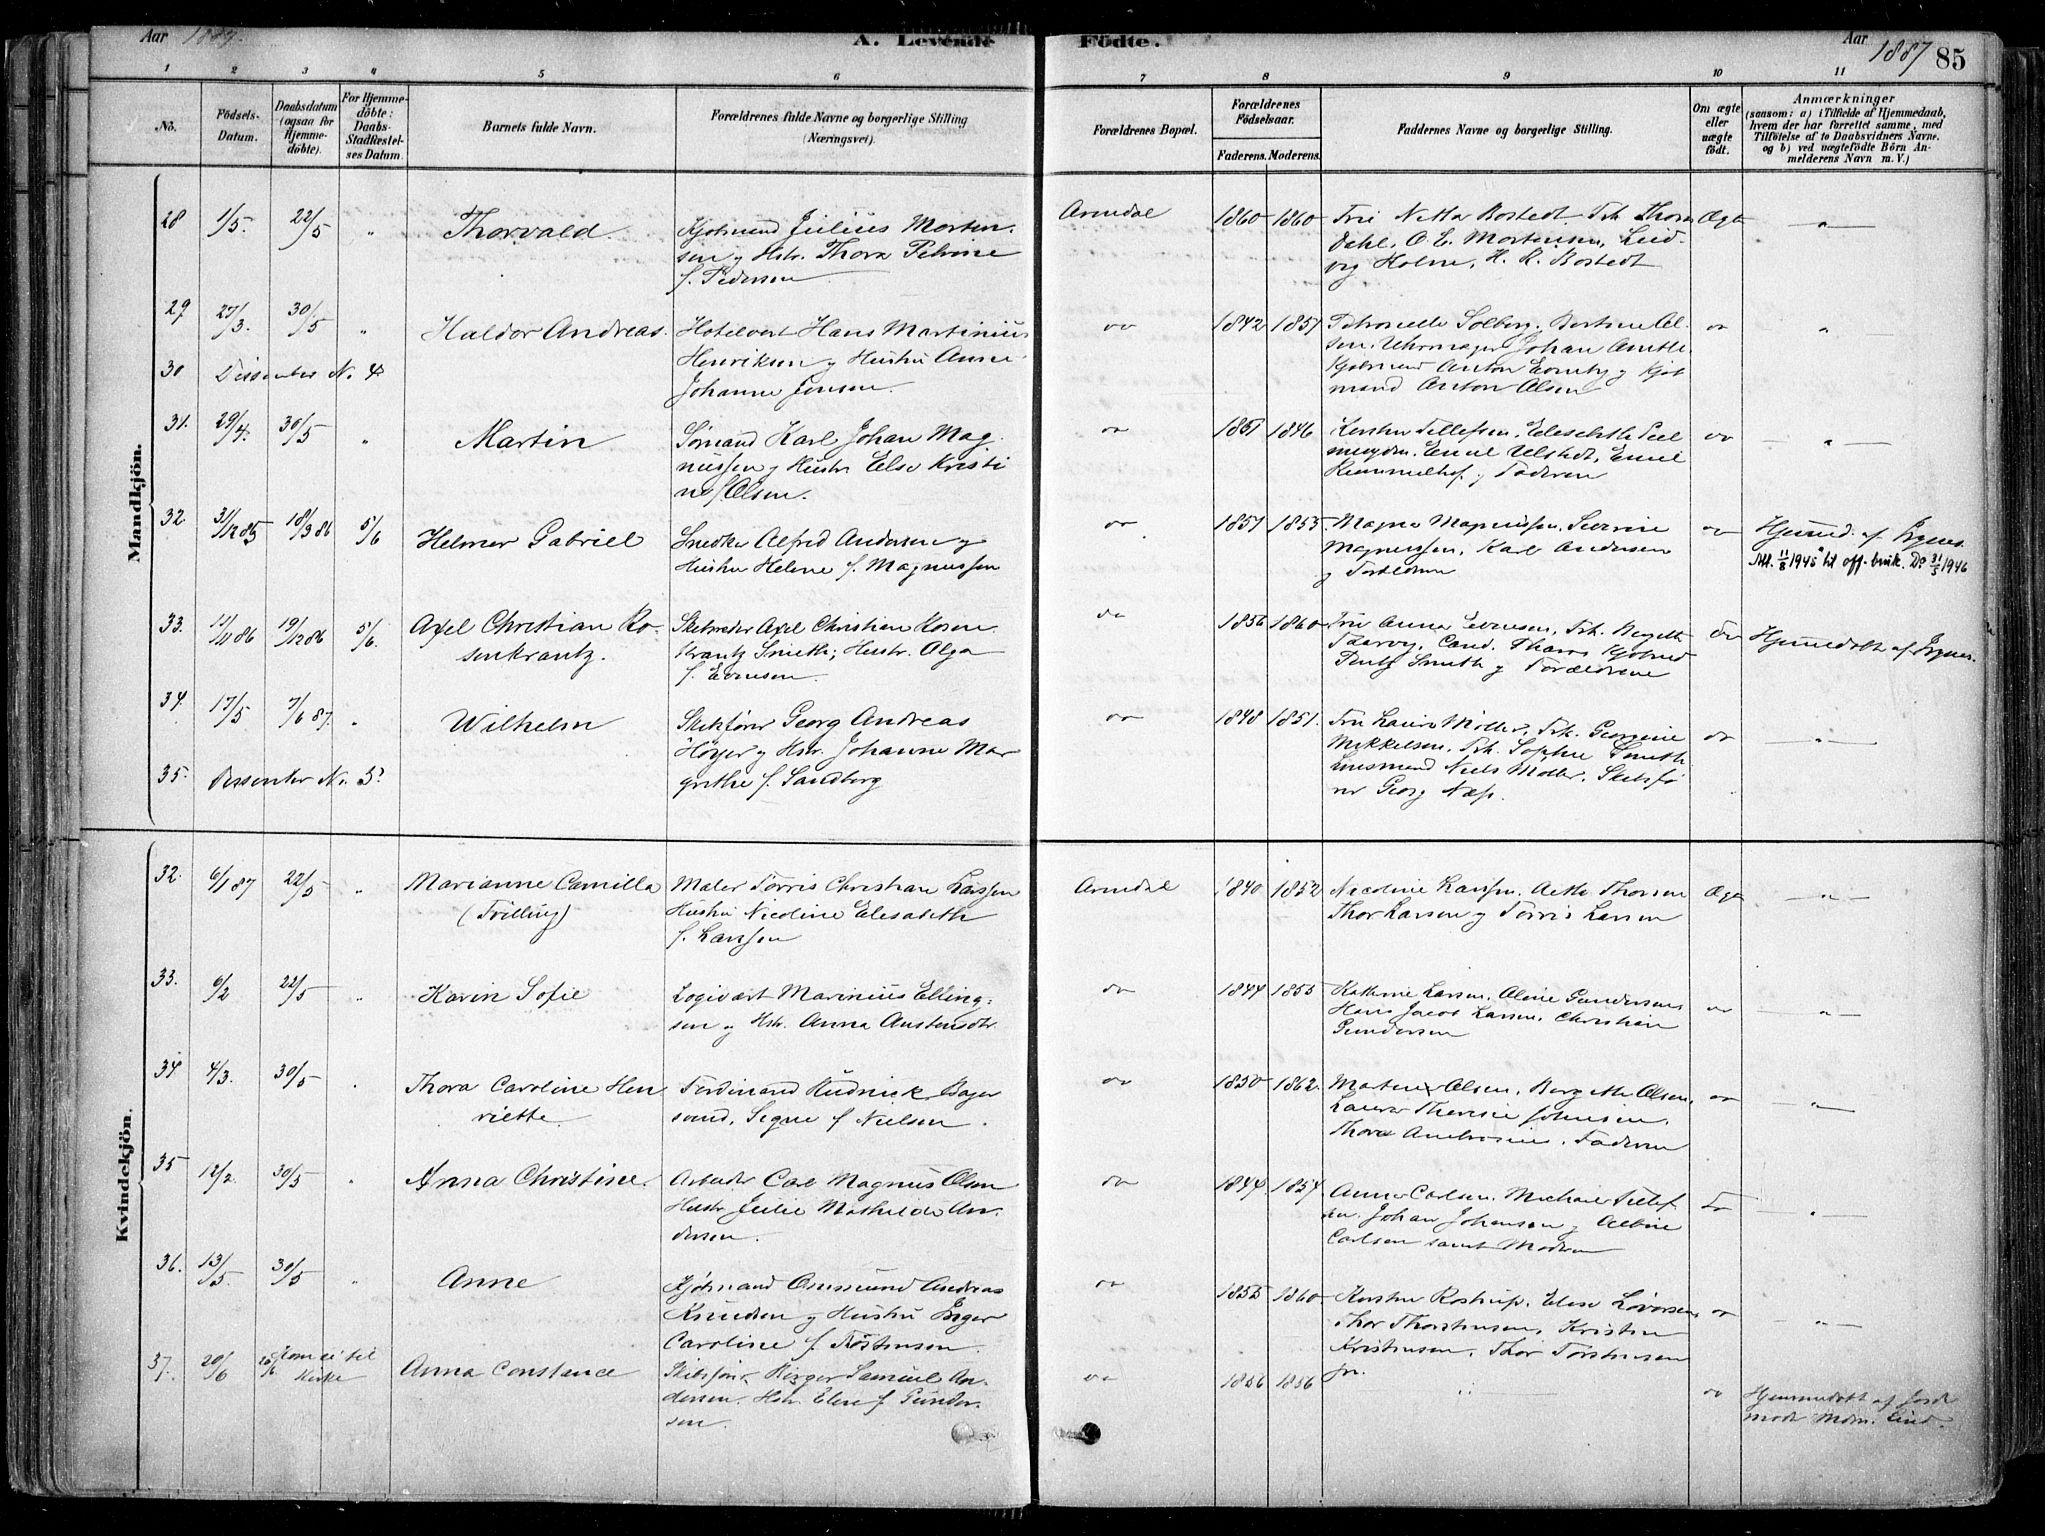 Aar 1887.
A. Levende Födte.
Aar 1887 85
1 2 3 4 5 6 7 8 9 10 11
No.
Födsels-
Datum.
Daabsdatum
(ogsaa for
Hjemme-
döbte).
For Hjemme-
döbte:
Daabs-
Stadfæstel-
ses Datum.
Barnets fulde Navn.
Forældrenes fulde Navne og borgerlige Stilling
(Næringsvei).
Forældrenes Bopæl.
Forældrenes
Födselsaar.
Faderens. Moderens.
Faddernes Navne og borgerlige Stilling.
Om ægte
eller
uægte
födt.
Anmærkninger
(saasom: a) i Tilfælde af Hjemmedaab,
hvem der har forrettet samme, med
Tilföielse af to Daabsvidners Navne.
og b) ved uægtefödte Börn An-
melderens Navn m. V.)
Mandkjön.
28 1/5. 22/5 " Thorvald. Kjøbmand Julius Morten-
sen og Hstr. Thora Petrine
f. Pedersen
Arendal 1860 1860 Fru Netta Bostedt Frk. Thora
Dahl, O. E. Mortensen, Lud-
vig Holm, H. R. Bostedt
Ægte "
29 27/3. 30/5 " Haldor Andreas. Hotelvert Hans Martinius
Henriksen og Hustru Anne
Johanne Jensen.
do 1842 1857 Petronelle Solberg, Bertine Ol-
sen. Uhrmager Johan
Kjøbmand Anton og Kjøb-
mand Anton Olsen
do "
30 Dissenter No. 4
31. 29/4. 30/5 " Martin Sømand Karl Johan Mag-
nussen og Hustr Else Kristi
ne f. Olsen.
do 1851 1846 Kirstine Tellefsen, Elisabeth
Emil Ulstedt, Emil
og Faderen
do "
32. 31/12 85 18/3 86 5/6 Helmer Gabriel Snedker Alfred Andersen og
Hustru Helene f. Magnussen
do 1851 1853. Magna Magnussen, Severine
Magnussen, Karl Andersen
og Forældrene
do Hjemmd. af
Att. 11/8 1945 til off. bruk. Do 31/5 1946
33. 11/11 86 19/12 86 5/6. Axel Christian Ro-
senkrantz.
Skibsreder Axel Christian Rosen-
krantz Smith; Hustr. Olga
f. Evensen.
do 1856 1860 Fru Anna Evensen, Frk. Bergith
Cand. Pharm Kjøbmd
Smith og Forældrene
do Hjemmedøbt af
34. 17/5 7/6 87. " Wilhelm Skibsfører Georg Andreas
Höyer og Hstr. Johanne Mar
grethe f. Sandberg
do 1848 1851. Fru Laura Møller, Frk. Georgine
Mikkelsen, Frk. Sophie Smith
Niels Møller, Skibsfø
rer Georg Næs.
do "
35. Dissenter No. 5.
Kvindekjön.
32. 6/1 87 22/5 " Marianne Camilla
(Tvilling)
Maler Torris Christian Larssen
Hustru Nicoline Elisabeth
f. Larssen
Arendal 1840 1852 Nicoline Larssen. Thorsen
Thor Larsen og Torris Larsen
Ægte "
33. 6/2 22/5 " Karin Sofie Logivært Marinius Elling-
sen og Hstr. Anna Austensdtr.
do 1844 1855 Kathrine Larsen, Oline Gundersen
Hans Jacob Larsen, Christian
Gundersen
do "
34 4/3. 30/5 " Thora Caroline Hen
riette.
Ferdinand Rudnick, Bager
svend, Signe f Nielsen.
do 1850 1862. Martin Olsen, Bergitte Olsen,
Laura Therese Johnsen,
Thora Ambrosius, Faderen
do "
35 12/2. 30/5 " Anna Christine. Arbeider Carl Magnus Olsen
Hustr. Julie Mathilde An-
dersen.
do 1844. 1854. Anna Carlsen. Michael Tellef
sen. Johan Johansen og Albine
Carlsen samt Moderen
do "
36. 13/5. 30/5 " Anne Kjøbmand Omund Andreas
Knudsen og Hustru Inger
Caroline f. Torstensen.
do 1855 1860. Kirstine Rostrup, Elise Lövorsen
Thor Thorstensen, Kristen
Kristensen, Thor Torstensen
jr.
do "
37. 20/6 Kom ei til
Kirke
Anna Constance Skibsfører Birger Samuel An-
dersen. Hstr. Elise f Gunder-
sen.
do 1856 1856 "
do Hjemmedøbt af Jord
moder Mdm. Lind.